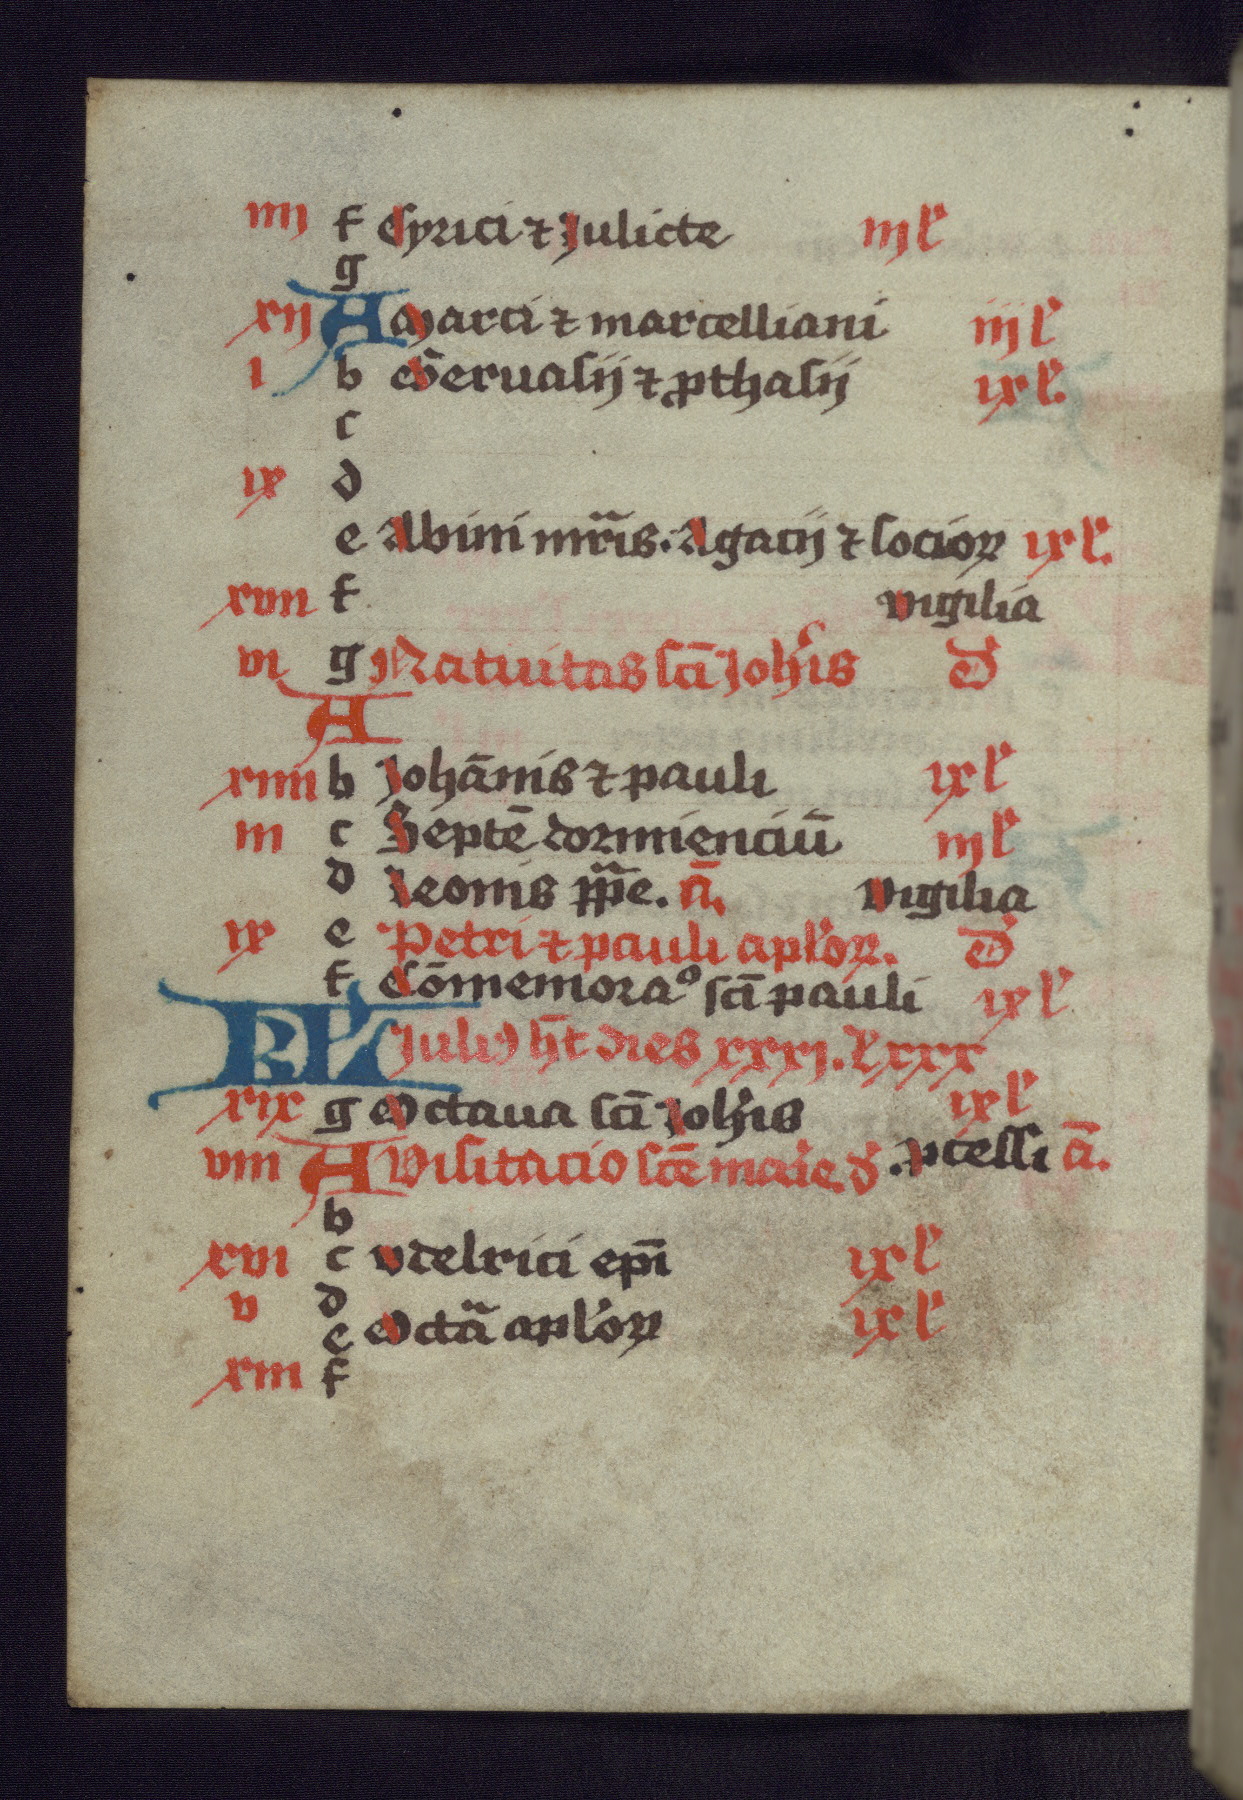 iiij f Cyrici ⁊ Julicte iij l
g
xij A Marci ⁊ marcelliani iij l
i b Geruasij ⁊ ꝓthasij ix l.
c
ix d
e Albini mr̄is. Agacij ⁊ socioꝝ ix l.
xvii f vigilia
vi g Natiuitas sc̄i Joh̓is d̄
A
xiiii b Joha̅nis ⁊ pauli ix l
iii c Septe̅ dormienciu̅ iij l
d Leonis pp̄e. a̅. vigilia
ix e Petri ⁊ pauli apl̓oꝝ. d̄
f Co̅memoraꝰ sc̄i pauli ix l
KL Julius h̄t dies xxxi. l xxx
xix g Octaua sc̄i Joh̓is ix l
viii A Visitacio sc̄e marie. d̄ .ꝓcessi a̅.
b
xvi c Vdelrici ep̄i ix l
v d
e Octa̅ apl̓oꝝ ix l
xiii f